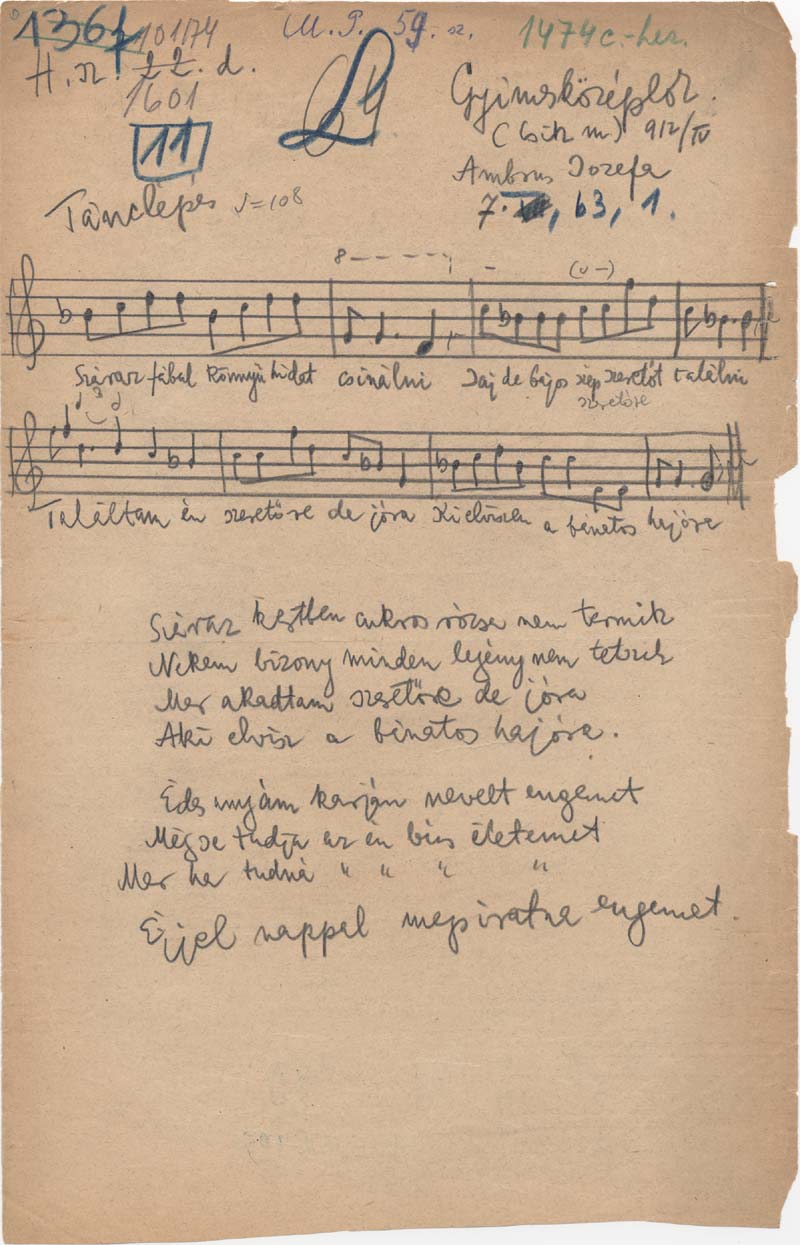 1361 101/74 M. P. 59. sz. 1474c.-her.
H. sz. 22. d.
1601
11
Gyimesközéplok.
(Csik m.) 912/IV
Ambrus Jozefa
7. , 63, 1.
Tánclépés ♩=108
8
(∪ –)
Száraz fábal könnyü hidot csinálni Jaj de bajos szép szeretőt találni
szeretőre
Találtam én szeretőre de jóra Ki elviszen a bánatos hajóra
Száraz kertben cukros rózsa nem termik
Nekem bizony minden legény nem tetszik
Mer akadtam szeretőre de jóra
Aki elvisz a bánatos hajóra.
Édes anyám karján nevelt engemet
Mégse tudja az én bús életemet
Mer ha tudná " " " "
Éjjel nappal megsiratna engemet.